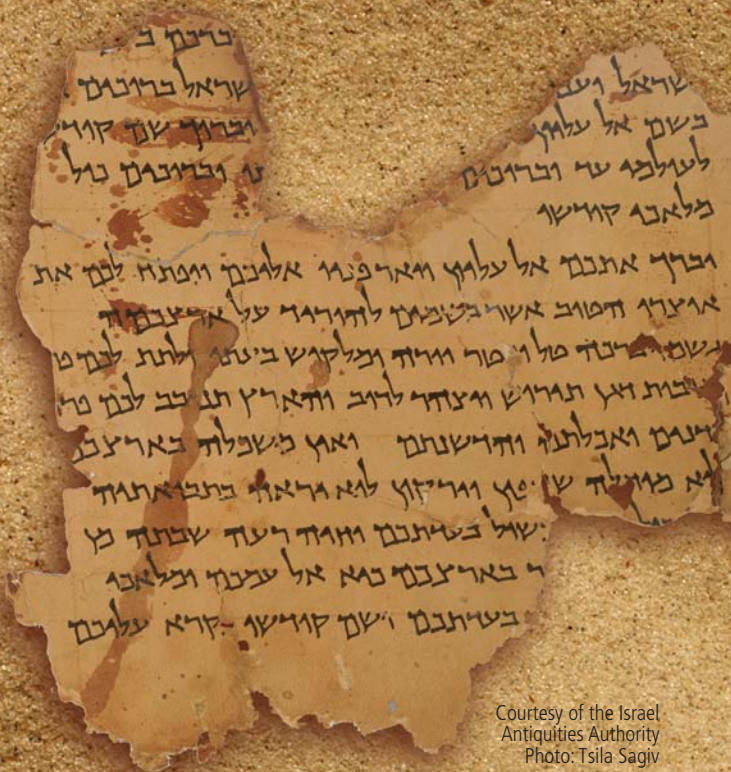 ברכם ב
שראל וענ שראל ברוכים
בשם אל עליון וברוך שם קודש
לעולמי עד וברוכים וברוכים כול
מלאכי קודשו
יברך אתכם אל עליון ויאר פניו אליכם ויפתח לכם את
אוצרו הטוב אשר בשמים להוריד על ארצכם
גשמי ברכה טל ומטר יורה ומלקוש בעתו ולתת לכם
דגן תירוש ויצהר לרוב והארץ תנובב לכם פרי
ואכלתם והדשנתם ואין משכלה בארצכם
מוחלה שדפון וירקון לוא יראה בתבואתיה
בעדתכם וחיה רעה שבתה מן
ר בארצכם כיא אל עמכם ומלאכי
בעדתכם ושם קודשו נקרא עליכם
Courtesy of the Israel
Antiquities Authority
Photo: Tsila Sagiv